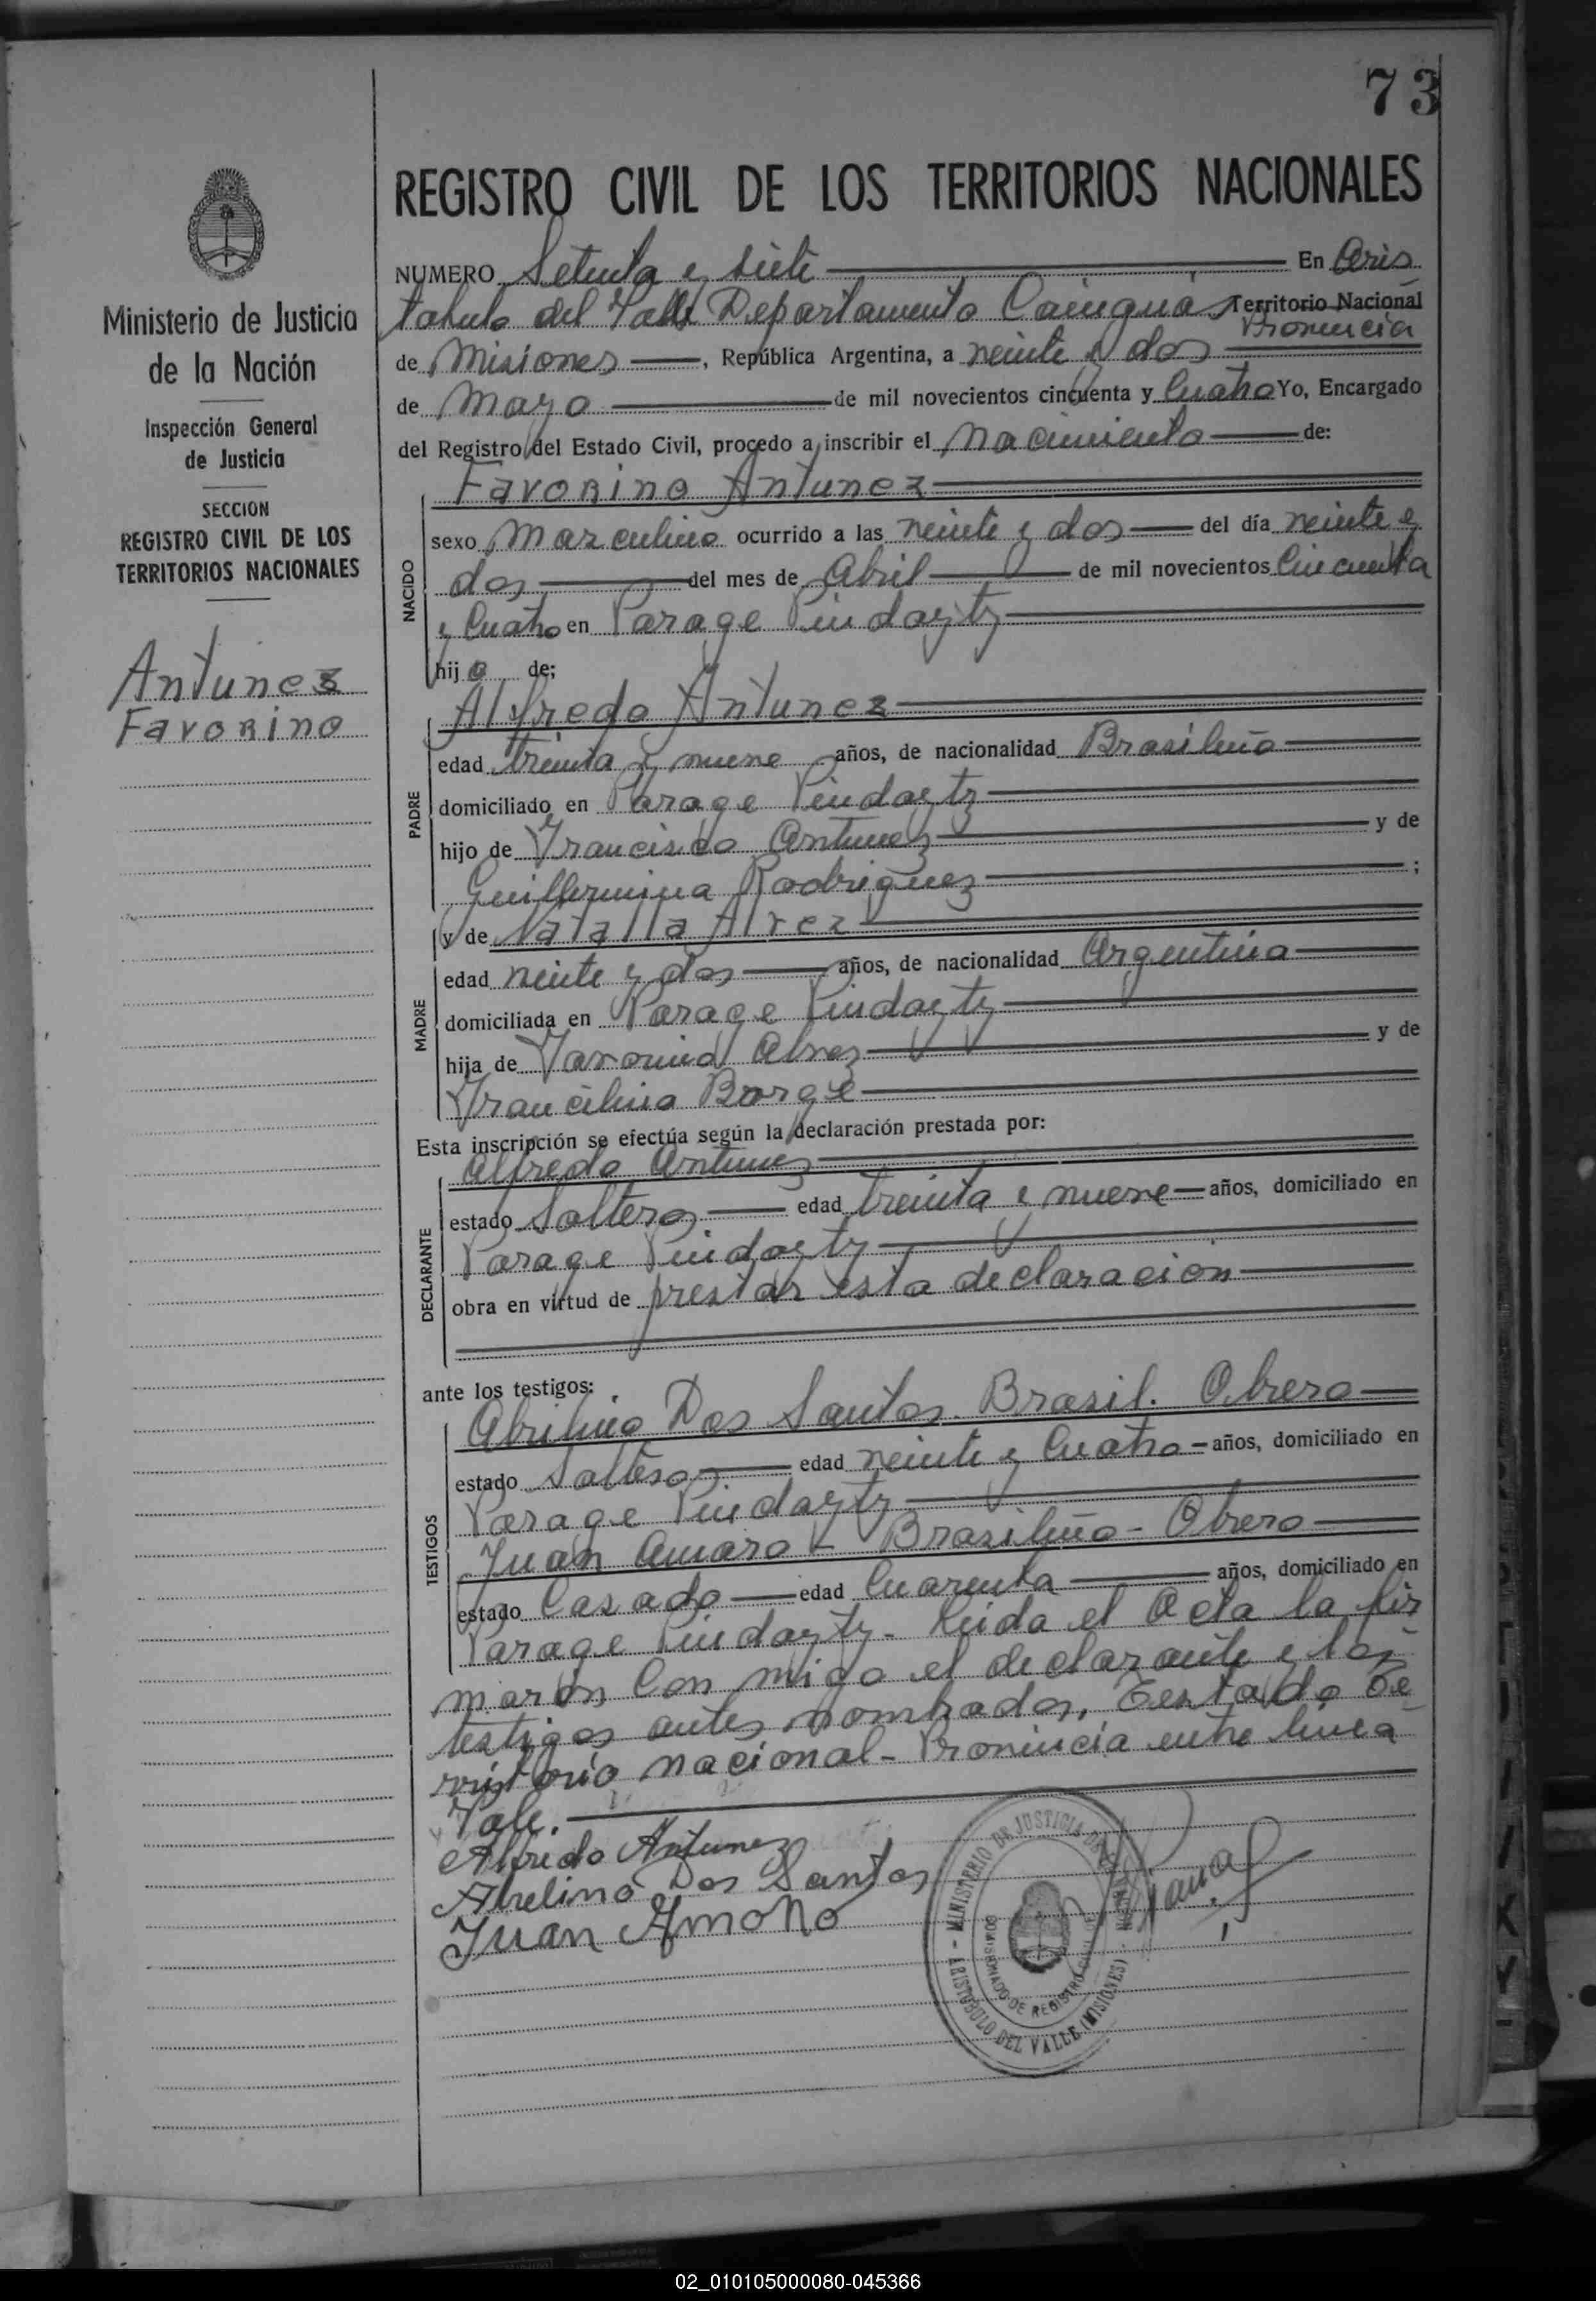 73
REGISTRO CIVIL DE LOS TERRITORIOS NACIONALES
NUMERO Setenta y siete En Aris
tobulo del Valle Departamento Cainguás Territorio Nacional
Provincia
de Misiones, República Argentina, a veinte y dos
de Mayo de mil novecientos cincuenta y Cuatro Yo, Encargado
del Registro del Estado Civil, procedo a inscribir el Nacimiento de:
Favorino Antunez
NACIDO
sexo Mazculino ocurrido a las veinte y dos del día veinte y
dos del mes de Abril de mil novecientos Cincuenta
y Cuatro en Parage Pindayty
hijo de;
PADRE
Alfredo Antunez
edad treinta y nueve años, de nacionalidad Brasileño
domiciliado en Parage Pindayty
hijo de Francisco Antunez y de
Guillermina Rodriguez;
MADRE
y de Natalia Alvez
edad veinte y dos años, de nacionalidad Argentina
domiciliada en Parage Pindayty
hija de Alvez y de
Francilina Borge
Esta inscripción se efectúa según la declaración prestada por:
DECLARANTE
Alfredo Antunez
estado Soltero edad treinta y nueve años, domiciliado en
Parage Pindayty
obra en virtud de prestar esta declaracion
ante los testigos:
TESTIGOS
Dos Santos. Brasil. Obrero
estado Soltero edad veinte y Cuatro - años, domiciliado en
Parage Pindayty
Juan Amaro - Brasileño - Obrero
estado Casado edad Cuarenta años, domiciliado en
Parage Pindayty - Leida el Acta la fir
maron Con migo el declarante y los
testigos antes nombrados, Testado Te
rritorio nacional - Provincia entre linea
Vale.
Alfredo Antunez
Abelino Dos Santos
Juan Amoro
MINISTERIO DE JUSTICIA DE LA NACION
DE REGISTRO CIVIL
ARISTOBULO DEL VALLE (MISIONES)
Ministerio de Justicia
de la Nación
Inspección General
de Justicia
SECCION
REGISTRO CIVIL DE LOS
TERRITORIOS NACIONALES
Antunez
Favorino
02_010105000080-045366